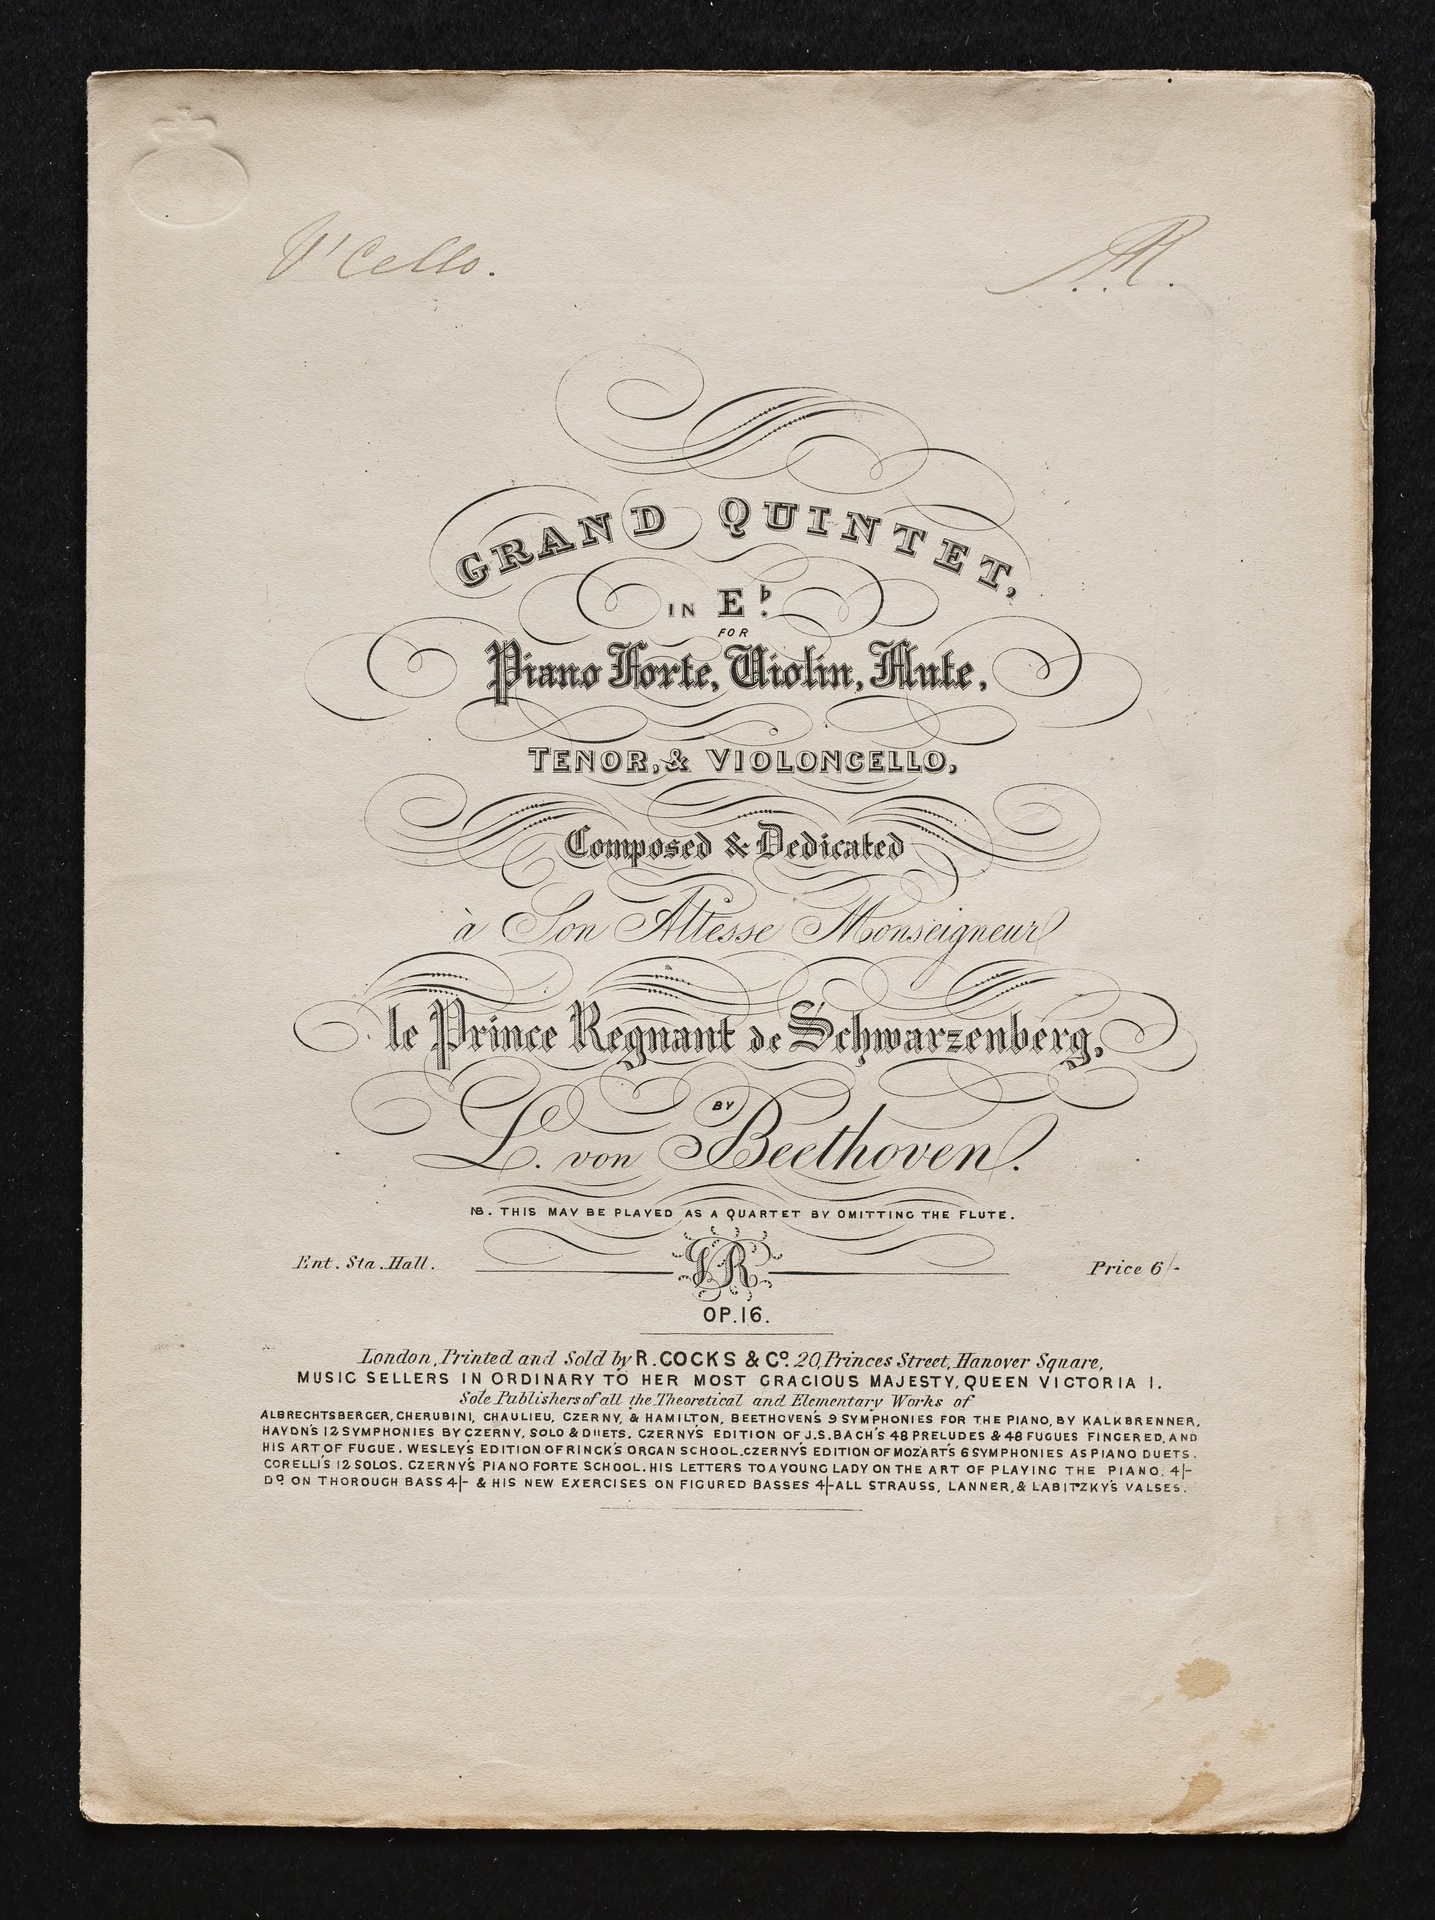 V'Cello.
GRAND QUINTET,
IN E♭.
FOR
Piano Forte, Violin, Flute,
TENOR, & VIOLONCELLO,
Composed & Dedicated
à Son Altesse Monseigneur
le Prince Regnant de Schwarzenberg,
BY
L. von Beethoven.
NB. THIS MAY BE PLAYED AS A QUARTET BY OMITTING THE FLUTE.
Ent. Sta. Hall. VR Price 6/-
OP.16.
London, Printed and Sold by R. COCKS & Co. 20, Princes Street, Hanover Square,
MUSIC SELLERS IN ORDINARY TO HER MOST GRACIOUS MAJESTY, QUEEN VICTORIA I.
Sole Publishers of all the Theoretical and Elementary Works of
ALBRECHTSBERGER, CHERUBINI, CHAULIEU, CZERNY, & HAMILTON, BEETHOVEN'S 9 SYMPHONIES FOR THE PIANO, BY KALKBRENNER,
HAYDN'S 12 SYMPHONIES BY CZERNY, SOLO & DUETS. CZERNY'S EDITION OF J.S. BACH'S 48 PRELUDES & 48 FUGUES FINGERED, AND
HIS ART OF FUGUE. WESLEY'S EDITION OF RINCK'S ORGAN SCHOOL. CZERNY'S EDITION OF MOZART'S 6 SYMPHONIES AS PIANO DUETS.
CORELLI'S 12 SOLOS. CZERNY'S PIANO FORTE SCHOOL. HIS LETTERS TO A YOUNG LADY ON THE ART OF PLAYING THE PIANO. 4/-
Do. ON THOROUGH BASS 4/- & HIS NEW EXERCISES ON FIGURED BASSES 4/- ALL STRAUSS, LANNER, & LABITZKY'S VALSES.